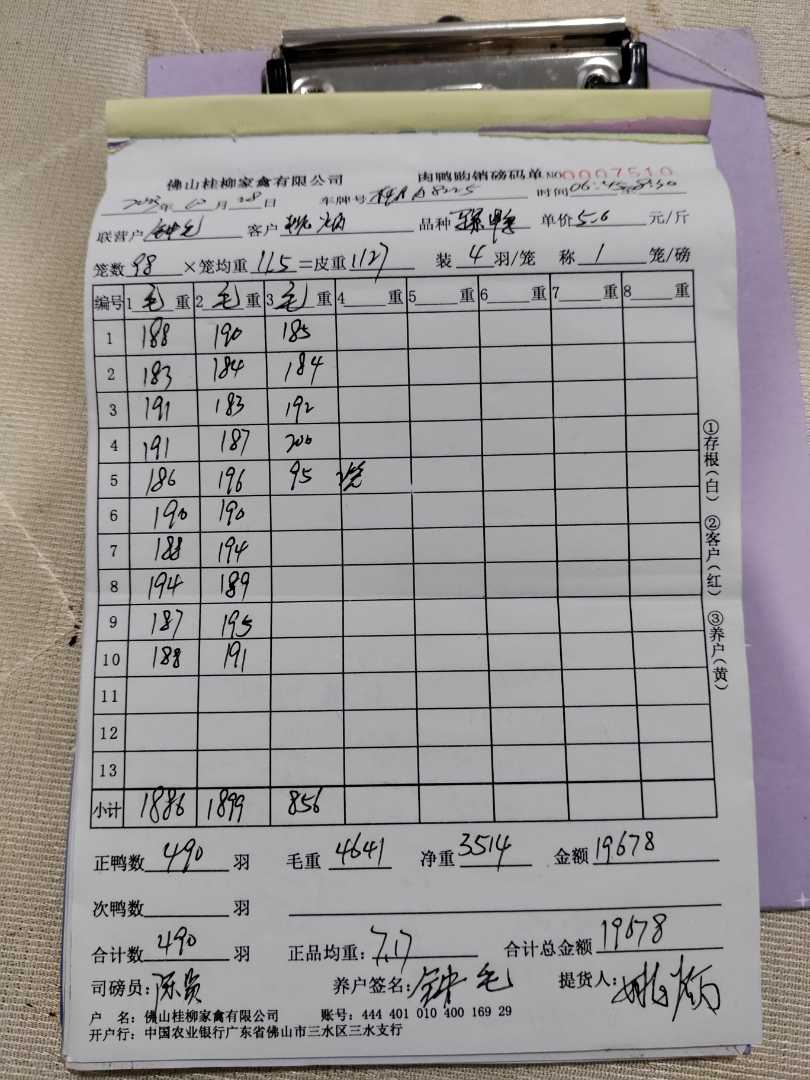 佛山桂柳家禽有限公司 肉鸭购销磅码单 NO 0007510
年 月 28 日 车牌号 时间 06:45至8:50
联营户 钟 客户 姚 品种 单价 5.6 元/斤
笼数 98 ×笼均重 11.5 =皮重 1127 装 4 羽/笼 称 1 笼/磅
编号 1 毛 重 2 毛 重 3 毛 重 4 重 5 重 6 重 7 重 8 重
1 188 190 185
2 183 184 184
3 191 183 192
4 191 187 200
5 186 196 95
6 190 190
7 188 194
8 194 189
9 187 195
10 188 191
11
12
13
小计 1886 1899 856
正鸭数 490 羽 毛重 4641 净重 3514 金额 19678
次鸭数 羽
合计数 490 羽 正品均重: 7.17 合计总金额 19678
司磅员: 陈 养户签名: 钟 提货人: 姚
户 名: 佛山桂柳家禽有限公司 账号: 444 401 010 400 169 29
开户行: 中国农业银行广东省佛山市三水区三水支行
①存根(白) ②客户(红) ③养户(黄)